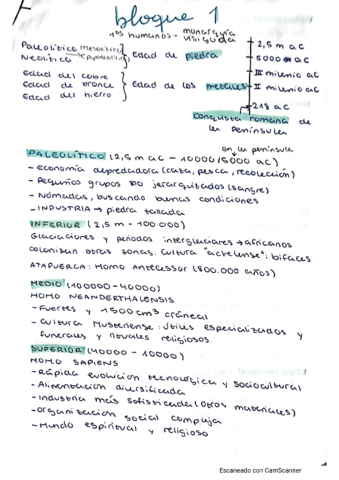 bloque 1
1os humanos - monarquía visigoda
Paleolítico (mesolítico
Neolítico
Edad de piedra
Edad del cobre
Edad de bronce
Edad del hierro
Edad de los metales
2,5 m aC
5000 aC
III milenio aC
II milenio aC
218 aC
Conquista romana de
la Península
en la península
PALEOLÍTICO (2,5 m aC - 10000/5000 aC)
- economía depredadora (caza, pesca, recolección)
- Pequeños grupos no jerarquizados (sangre)
- Nómadas, buscando buenas condiciones
- INDUSTRIA → piedra tallada
INFERIOR (2,5 m - 100000)
Glaciaciones y periodos interglaciares → africanos
colonizan otras zonas. Cultura "achelense": bifaces
ATAPUERCA: Homo Antecessor (800.000 años)
MEDIO (100000-40000)
HOMO NEANDERTHALENSIS
- Fuertes y 1500 cm3 craneal
- Cultura Musteriense: útiles especializados y
funerales y rituales religiosos.
SUPERIOR (40000 - 10000)
HOMO SAPIENS
- Rápida evolución tecnológica y sociocultural
- Alimentación diversificada
- Industria más sofisticada (otros materiales)
- Organización social compleja
- Mundo espiritual y religioso
Escaneado con CamScanner